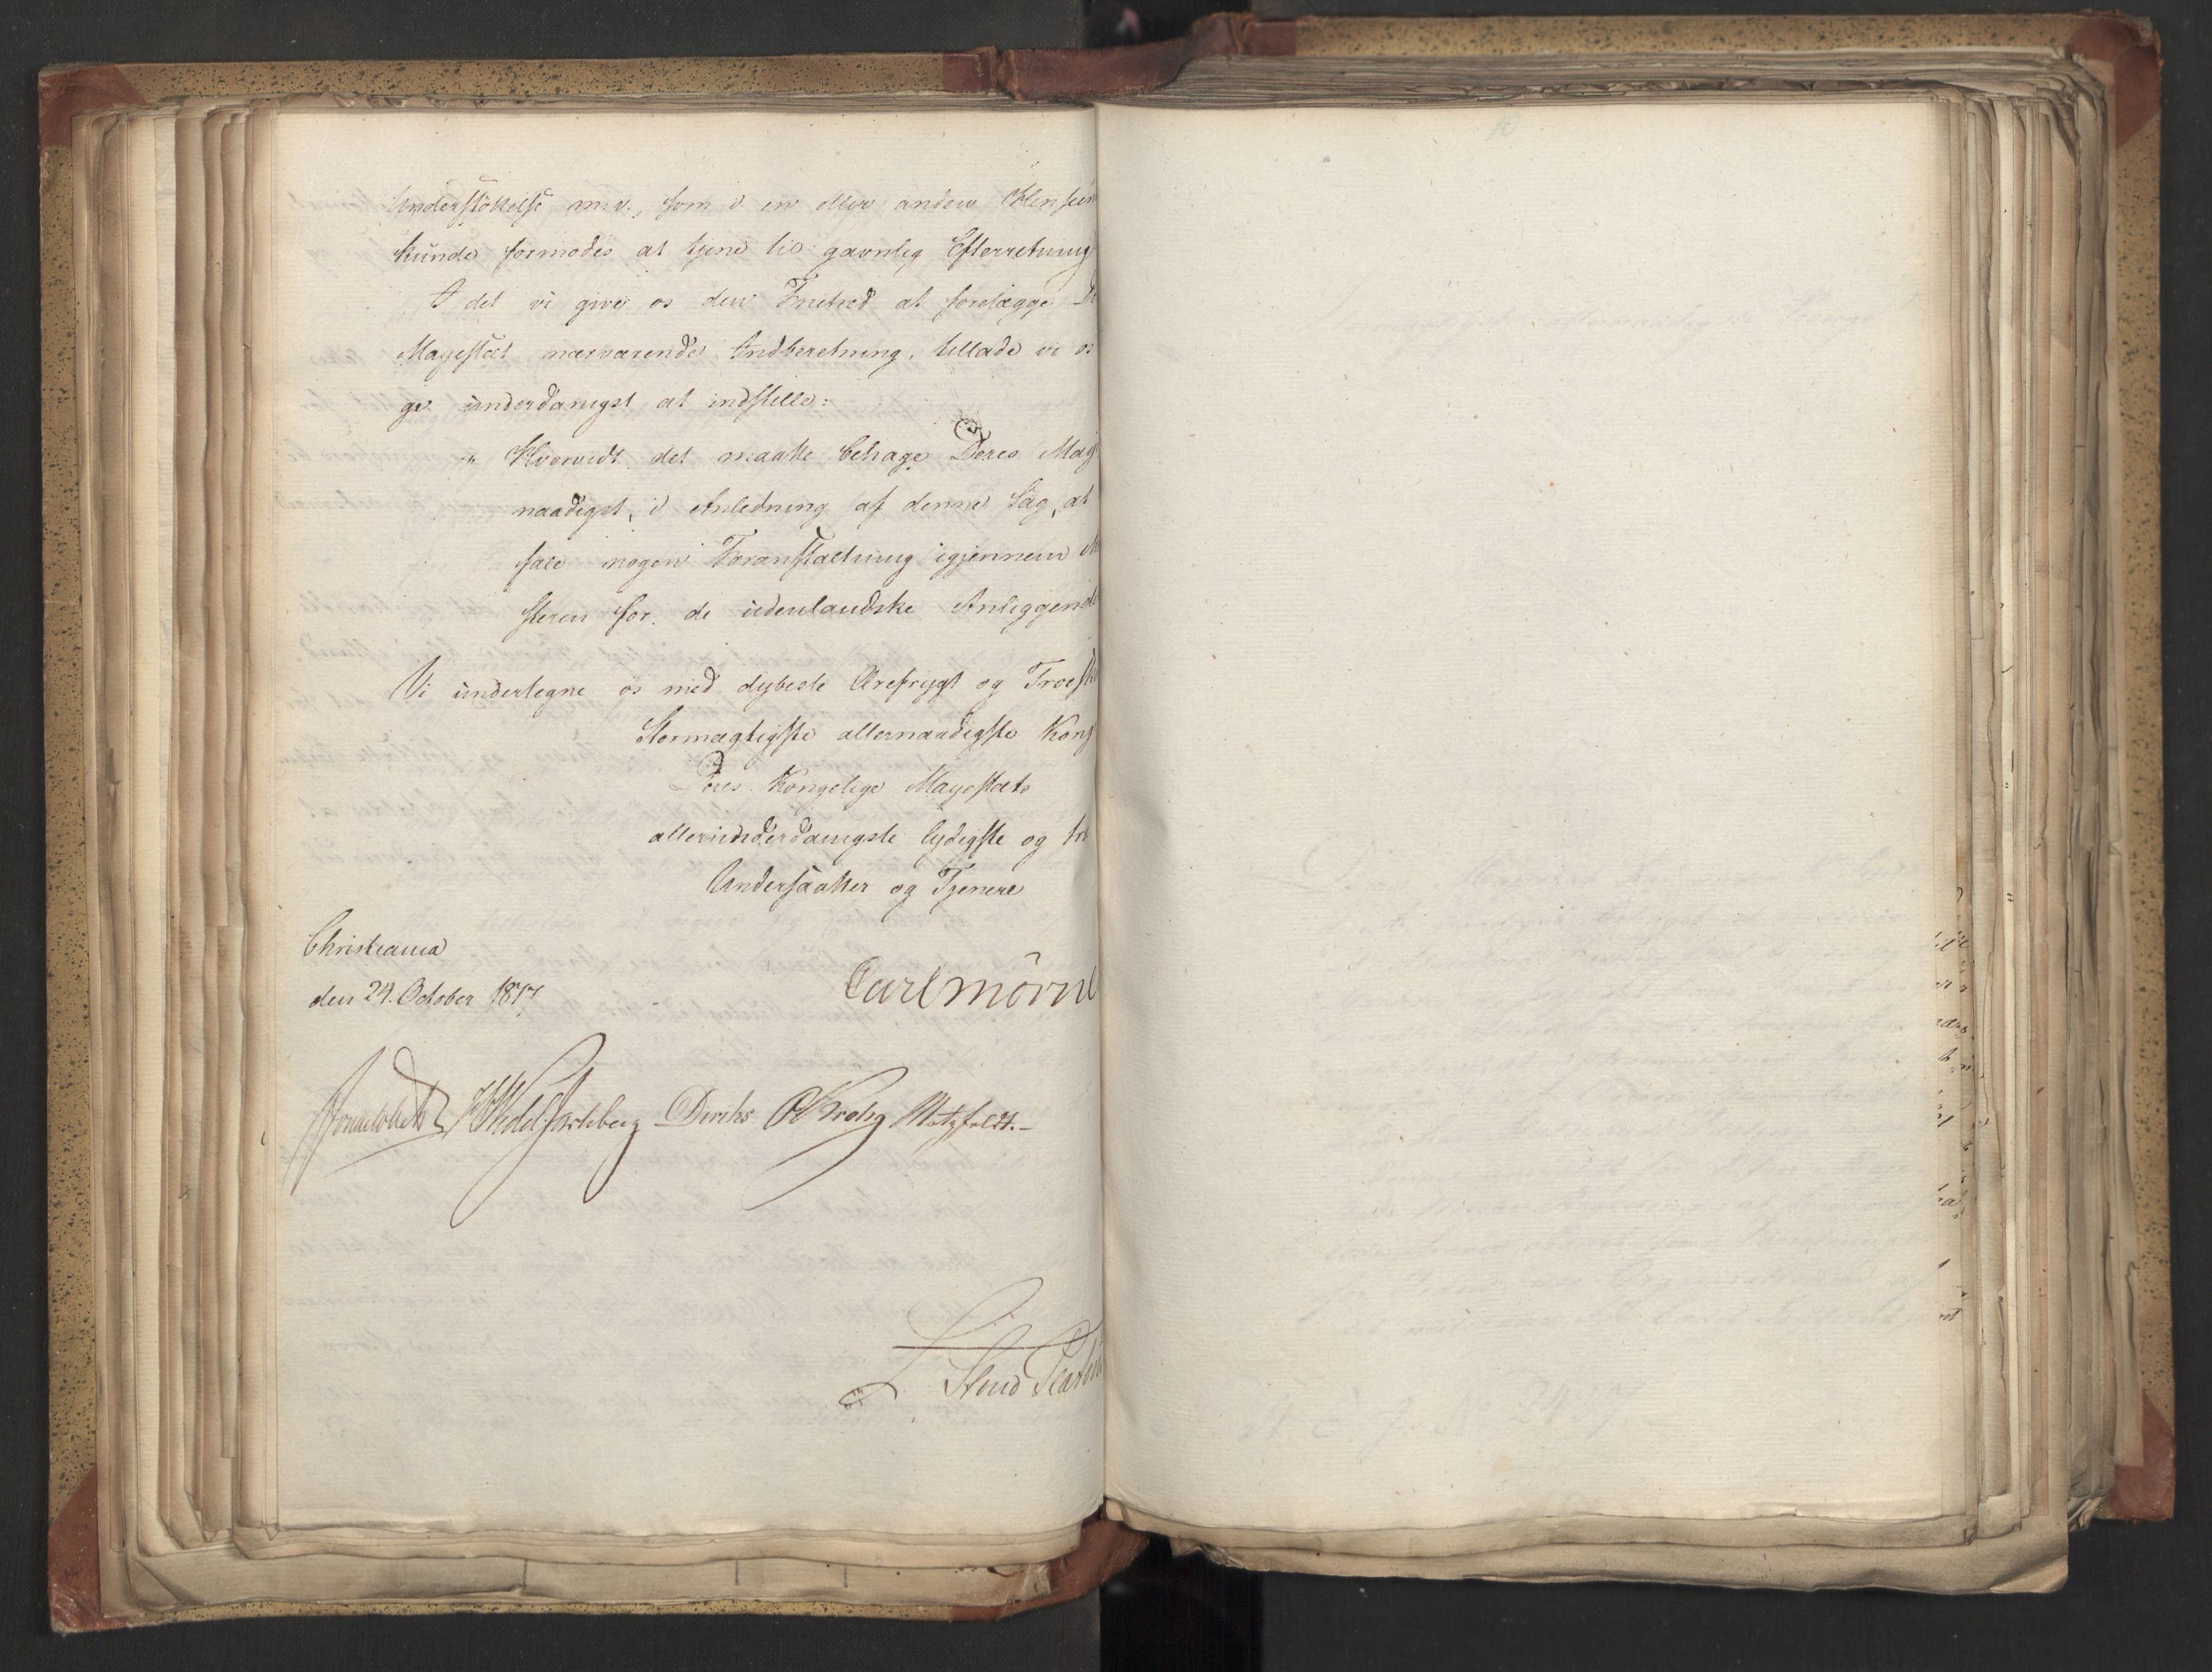 Understöttelse m.v., som i en eller anden Henseen
kunde formodes at tjene til gavnlig Efterretning
I det vi give os den Friehed at forelægge De
Majestæt nærværende Indberetning, tillade vi os
ge underdanigst at indstille:
" Hvorvidt det maatte behage Deres Maj
naadigst, i Anledning af denne Sag, at
fale nogen Foranstaltning igjennem M
steren for de udenlandske Anliggende
Vi undertegne os med dybeste Ærefrygt og Troesk
Stormægtigste allernaadigste Kong
Deres Kongelige Majestæts
allerunderdanigste lydigste og tro
Undersaatter og Tjenere
Christiania
den 24. October 1817
Carl Mörne
Sommerhielm HWedel Jarlsberg Diriks CKrohg Motzfeldt.